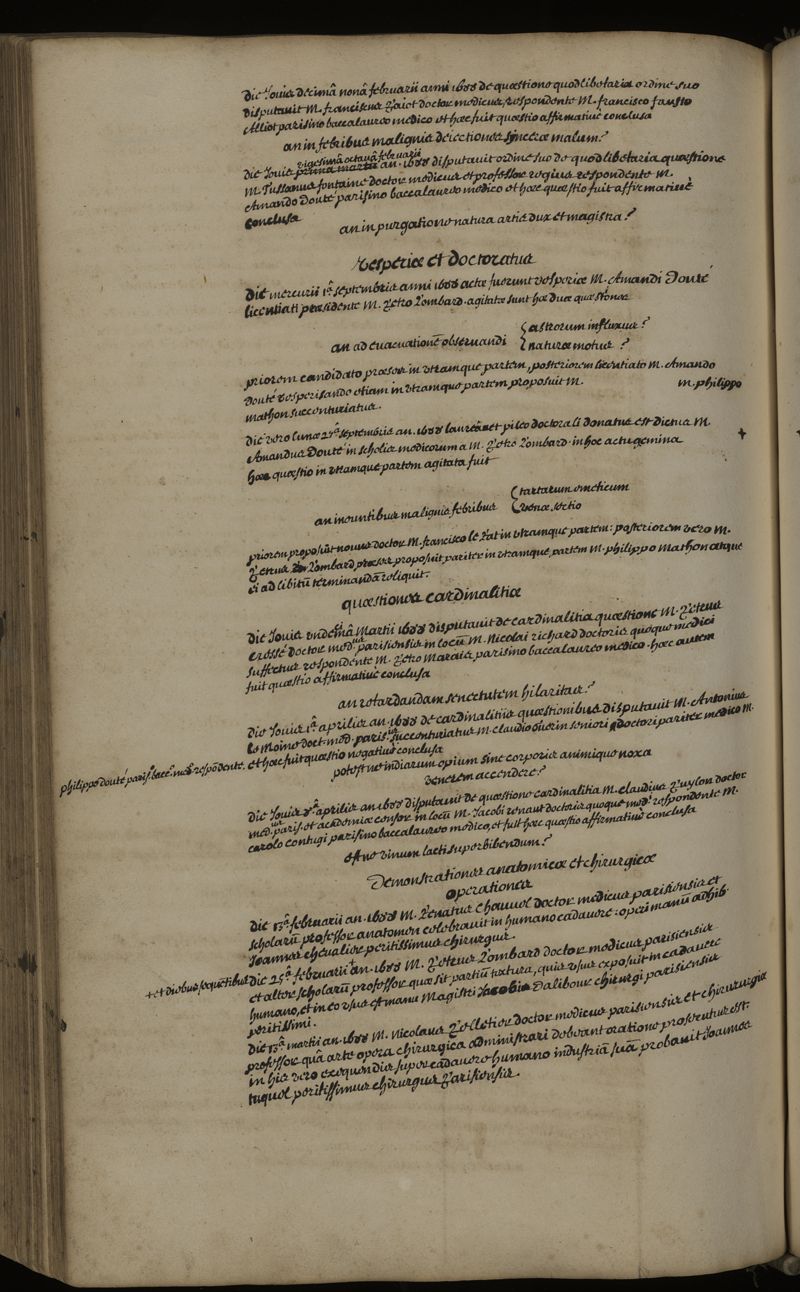 die Jouis decimâ nonâ februarii anni 1688 de quæstione quodlibetaria ordine suo
disputauit M. franciscus doctor medicus, respondente M. francisco fausto
Alliot parisino baccalaureo medico et hæc fuit quæstio affirmatiuè conclusa
an in febribus malignis deiectiones synceræ malum?
vigesimâ octauâ februarii
die Jouis prima martii an. 1688 disputauit ordine suo de quodlibetaria quæstione
M. Tussanus fontaine doctor medicus et professor regius respondente M.
Amando Douté parisino baccalaureo medico et hæc quæstio fuit affirmatiuè
conclusa
an in purgatione natura artis dux et magistra?
Vesperiæ et Doctoratus
die mercurii 1ª septembris anni 1688 actæ fuerunt vesperiæ M. Amandi Douté
licentiati præside M. Petro Lombard. agitatæ sunt hæ duæ quæstiones
an ad euacuationē obseruandi
astrorum influxus?
naturæ motus?
priorem candidato præses in vtramque partem, posteriorem licentiato M. Amando
douté vesperisando etiam in vtramque partem proposuit M. m. philippo
mathon succenturiatus.
die vero lunæ septembris an. 1688 laureâ et pileo doctorali donatus est dictus M.
Amandus Douté in scholis medicorum a M. Petro Lombard. in hoc actu gemina
hæc quæstio in vtramque partem agitata fuit
an ineuntibus malignis febribus
tartarum emeticum
venæ sectio
priorem proposuit nouus doctor M. francisco le Rat in vtramque partem: posteriorem vero M.
Petrus Lombard præses proposuit pariter in vtramque partem M. philippo Mathon atque
ei ad libitū terminandā reliquit.
quæstiones cardinalitiæ
die Jouis vndecimâ Martii 1688 disputauit de cardinalitia quæstione M. Petrus
Cressé doctor med.us parisiensis in locū M. Nicolai richard doctoris quoque medici
suffectus respondente M. Petro Marais parisino baccalaureo medico. hæc autem
fuit quæstio affirmatiuè conclusa
an retardandam senectutem hilaritas?
die Jouis 1ª aprilis an. 1688 de cardinalitiis quæstionibus disputauit M. Antonius
le Moine doct. med. paris.us succenturiatus M. claudio Guerin seniori doctori pariter medico M.
philippo douté paris.º bacc.º med.º respōdente. et hæc fuit quæstio negatiuè conclusa
potest ne indiarum opium sine corporis animique noxa
venerem accendere?
die Jouis 8ª aprilis an. 1688 disputauit de quæstione cardinalitia M. claudius Puylon doctor
med.us paris. et academiæ censor in locū M. Jacobi renaut doctoris quoque med. respondente M.
carolo contugi parisino baccalaureo medico, et fuit hæc quæstio affirmatiuè conclusa
est ne vinum lacti superbibendum?
Demonstrationes anatomicæ et chirurgicæ
operationes
die 13ª februarii an. 1688 M. Renatus Chauuel doctor medicus parisiensis et
scholarū professor anatomen celebrauit in humano cadauere: operi manū adhib.
Joannes cheualier peritissimus chirurgus.
+ et diebus sequētibus die 25ª februarii + an. 1688 M. Petrus Lombard doctor medicus parisiensis
et alter scholarū professor quæ sit partiū textura, quis vsus exposuit in cadauere
humano, et in eo vsus est manu Magistri Jacobi Dalibour chirurgi parisiensis
peritissimi.
die 13ª martii an. 1688 M. Nicolaus Pelletier doctor medicus parisiensis et chirurgiæ
professor quâ arte opera chirurgica administrari debeant oratione prosecutus est.
in his vero exequendis super cadauere humano industriā suā probauit Joannes
tuquel peritissimus chirurgus Parisiensis.